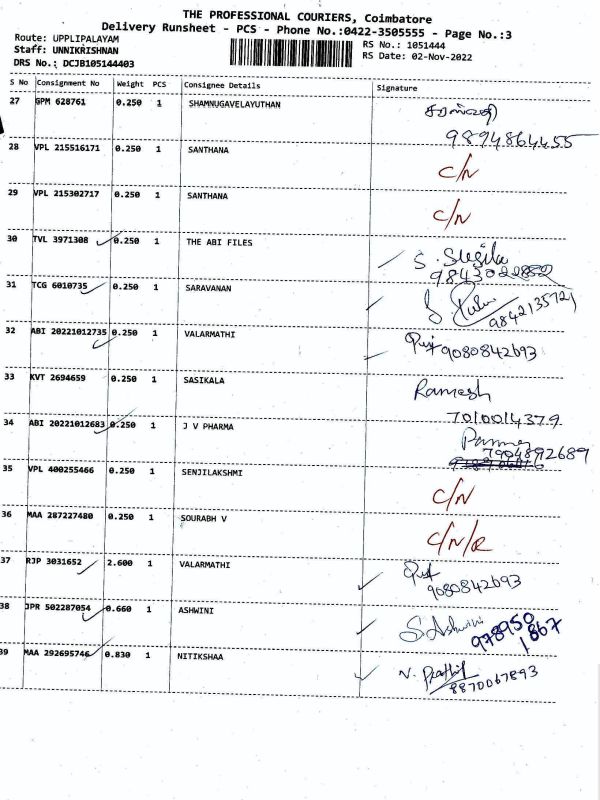 THE PROFESSIONAL COURIERS, Coimbatore
Delivery Runsheet - PCS - Phone No.:0422-3505555 - Page No.:3
Route: UPPLIPALAYAM
RS No.: 1051444
Staff: UNNIKRISHNAN
RS Date: 02-Nov-2022
DRS No.: DCJB105144403
S No Consignment No Weight PCS Consignee Details Signature
27 GPM 628761 0.250 1 SHAMNUGAVELAYUTHAN
9894864455
28 VPL 215516171 0.250 1 SANTHANA C/N
29 VPL 215302717 0.250 1 SANTHANA C/N
30 TVL 3971308 0.250 1 THE ABI FILES S.
9843022852
31 TCG 6010735 0.250 1 SARAVANAN
9842135721
32 ABI 20221012735 0.250 1 VALARMATHI 9080842693
33 KVT 2694659 0.250 1 SASIKALA Ramesh
7010014379
34 ABI 20221012683 0.250 1 J V PHARMA
7904892689
35 VPL 400255466 0.250 1 SENJILAKSHMI C/N
36 MAA 287227480 0.250 1 SOURABH V C/N/R
37 RJP 3031652 2.600 1 VALARMATHI
9080842693
38 JPR 502287054 0.660 1 ASHWINI S. Ashwini
978950
1867
39 MAA 292695746 0.830 1 NITIKSHAA N.
8870067893